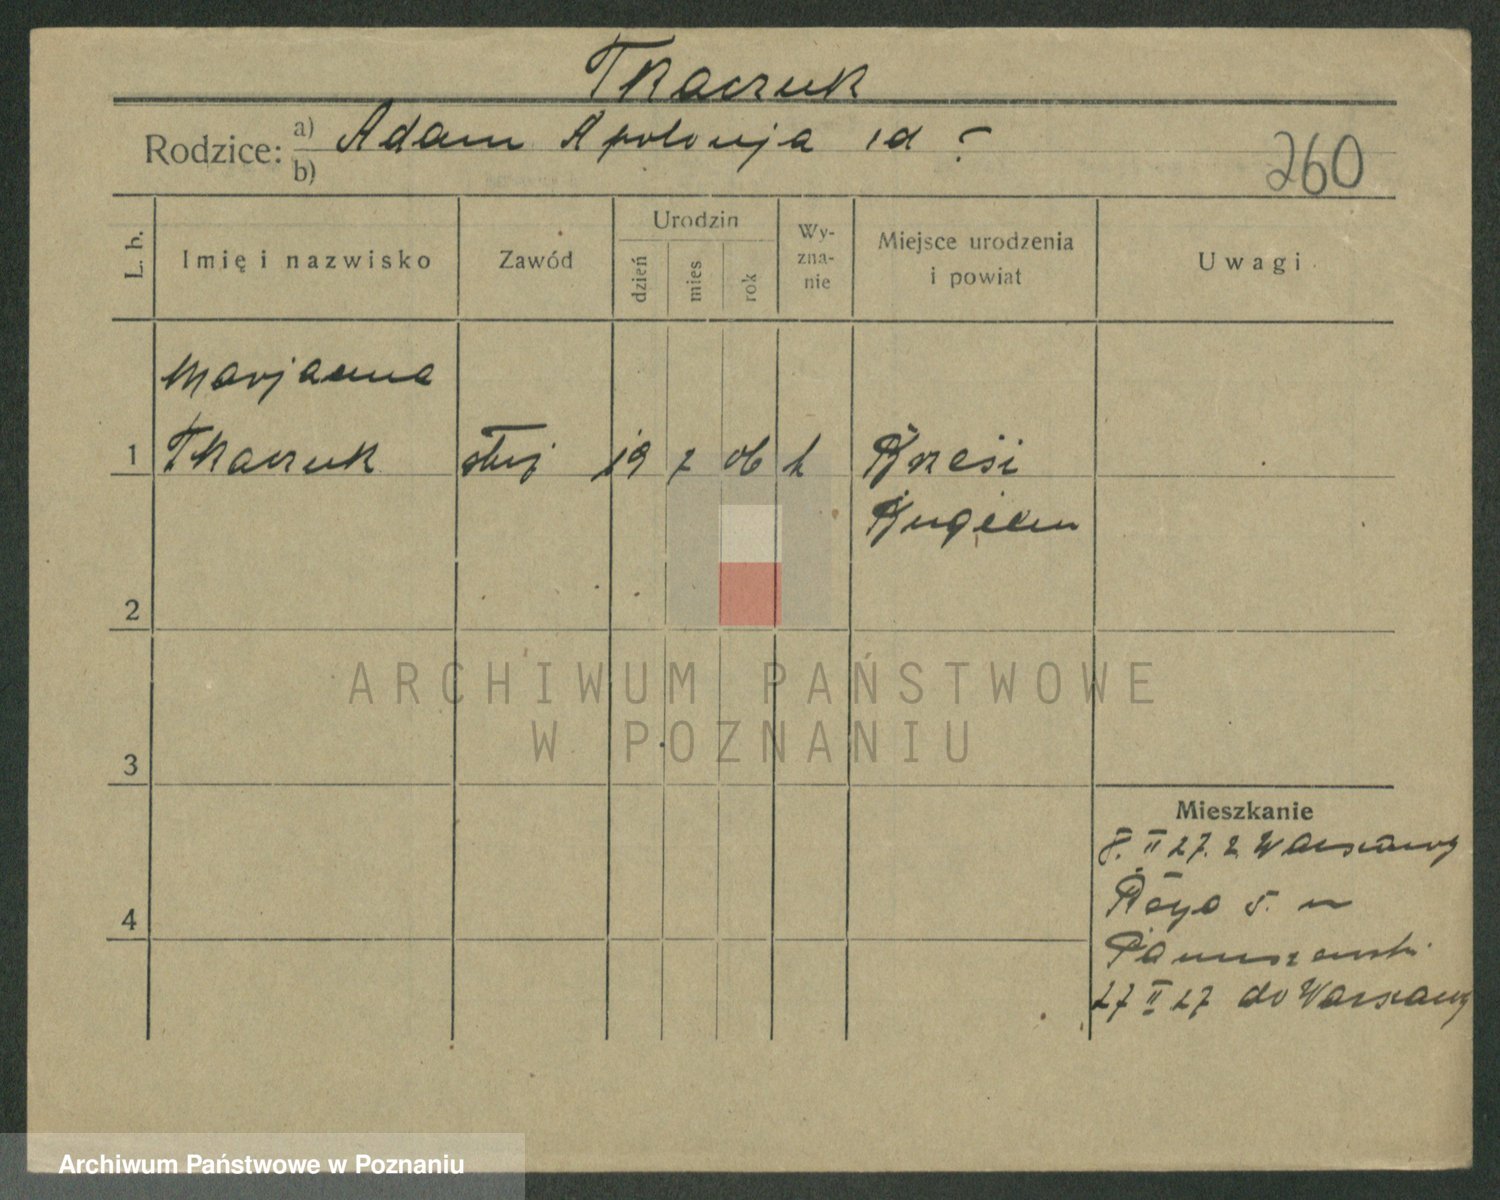 Tkaczuk
Rodzice: a) Adam Apolonja id ?
b)
260
L. b.
Imię i nazwisko
Zawód
Urodzin
dzień
mies
rok
Wy-
zna-
nie
Miejsce urodzenia
i powiat
Uwagi
Marjanna
1 Tkaczuk służ 19 7 06 k
2
3
4
Mieszkanie
8. II 27. z Warszawy
5. u
27 II 27 do Warszawy
ARCHIWUM PAŃSTWOWE
W POZNANIU
Archiwum Państwowe w Poznaniu